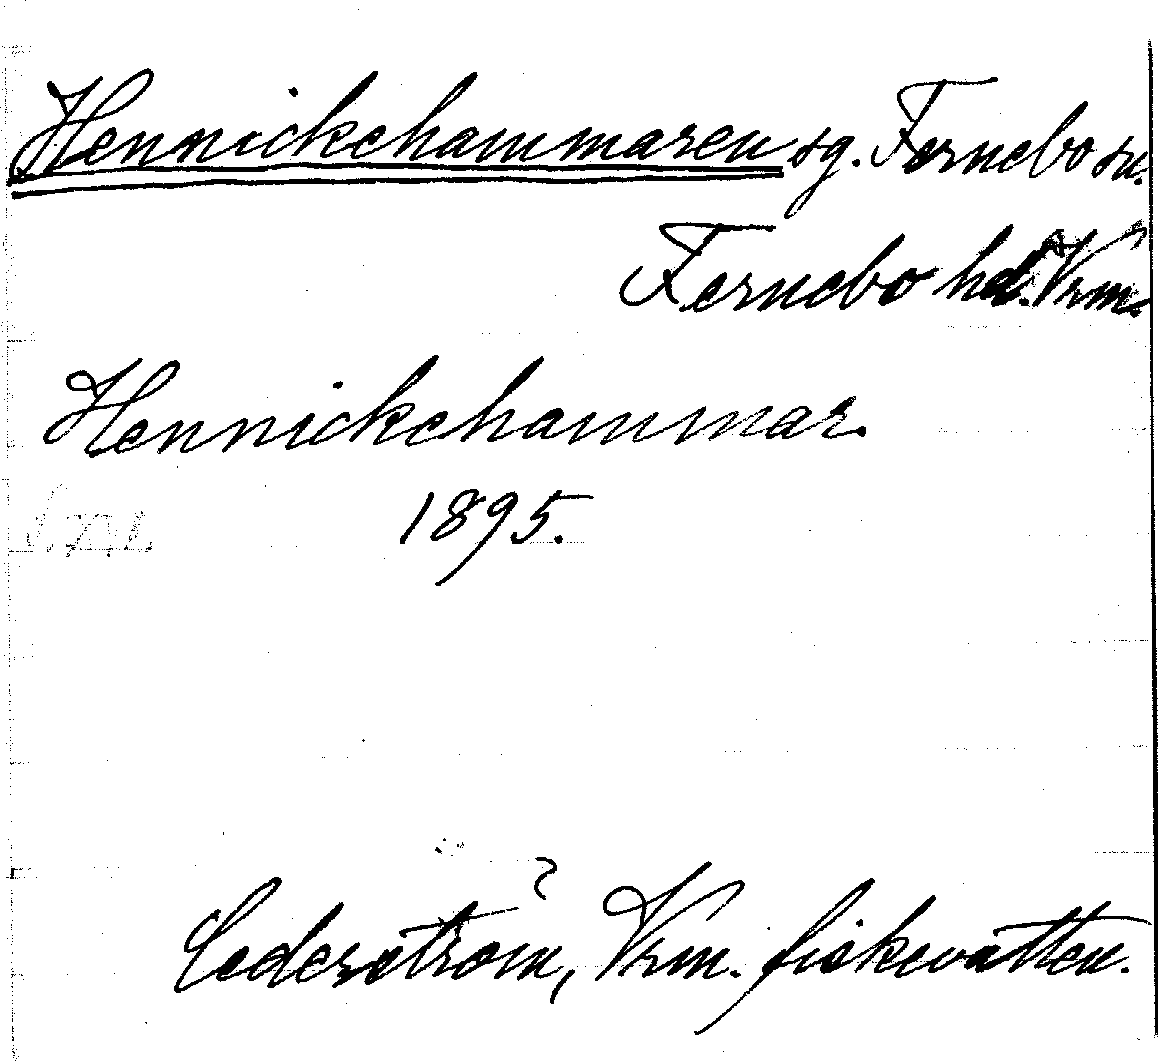 Hennickehammaren sg. Fernebo sn.
Fernebo hd. Vrm.
Hennickehammar.
1895.
Cederström, Vrm. fiskevatten.